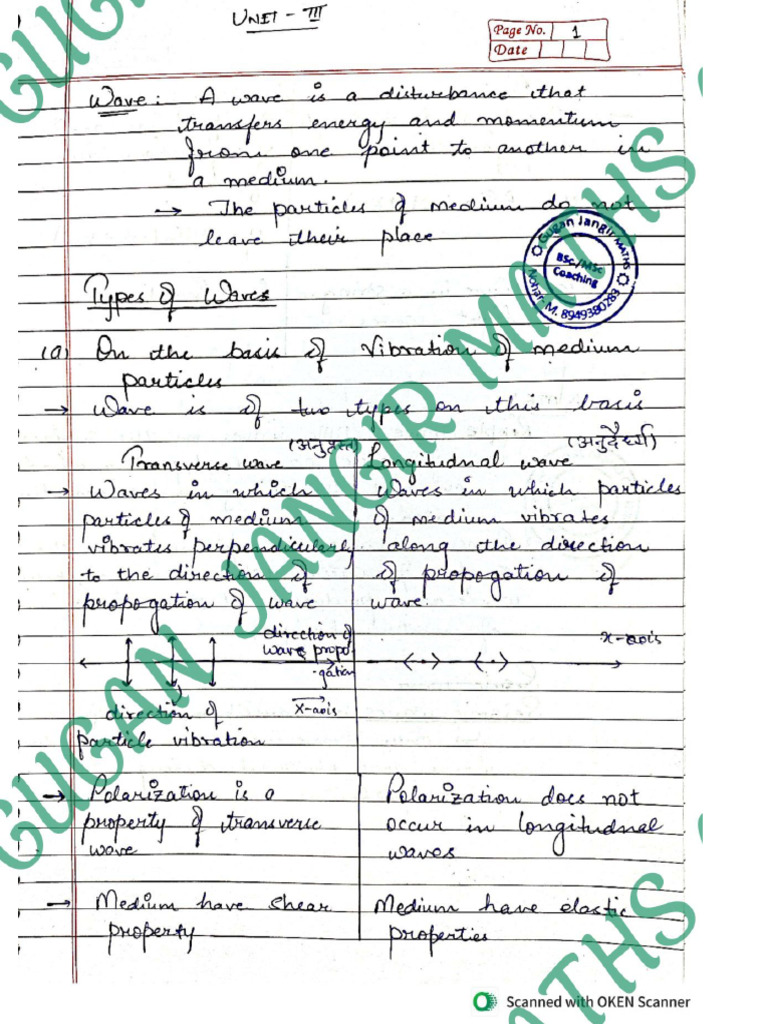 UNIT - III
Page No. 1
Date
Wave: A wave is a disturbance that
transfers energy and momentum
from one point to another in
a medium.
→ The particles of medium do not
leave their place
Gugan Jangir MATHS
BSc./MSc
Coaching
Nohar, M. 8949380289
Types of Waves
(a) On the basis of Vibration of medium
particles
→ Wave is of two types on this basis
Transverse wave (अनुप्रस्त)
→ Waves in which
particles of medium
vibrates perpendicularly
to the direction of
propogation of wave
direction of
wave propo-
-gation
X-axis
direction of
particle vibration
Longitudnal wave (अनुदैर्ध्य)
Waves in which particles
of medium vibrates
along the direction
of propogation of
wave.
x-axis
→ Polarization is a
property of transverse
wave
Polarization does not
occur in longitudnal
waves
→ Medium have shear
property
Medium have elastic
properties
GUGAN JANGIR MATHS
Scanned with OKEN Scanner